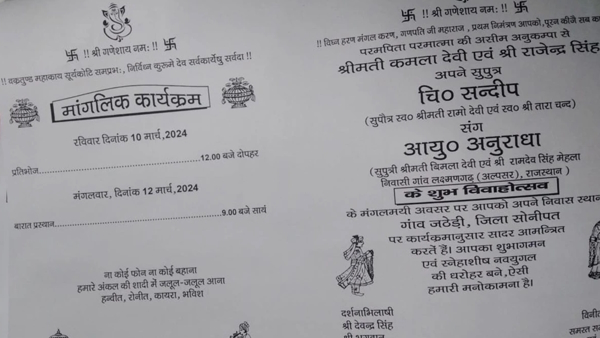 !! श्री गणेशाय नमः !!
!! वक्रतुण्ड महाकाय सूर्यकोटि समप्रभः, निर्विघ्न कुरूमे देव सर्वकार्येषु सर्वदा !!
मांगलिक कार्यक्रम
रविवार दिनांक 10 मार्च,2024
प्रतिभोज..........................................12.00 बजे दोपहर
मंगलवार, दिनांक 12 मार्च,2024
बारात प्रस्थान..........................................9.00 बजे सायं
ना कोई फोन ना कोई बहाना
हमारे अंकल की शादी में जलूल-जलूल आना
हन्वीत, रोनीत, कायरा, भविश
!! श्री गणेशाय नमः !!
!! विघ्न हरण मंगल करण, गणपति जी महाराज , प्रथम निमंत्रण आपको,पूरन कीजै सब
परमपिता परमात्मा की असीम अनुकम्पा से
श्रीमती कमला देवी एवं श्री राजेन्द्र सिंह
अपने सुपुत्र
चि० सन्दीप
(सुपौत्र स्व० श्रीमती रामो देवी एवं स्व० श्री तारा चन्द)
संग
आयु० अनुराधा
(सुपुत्री श्रीमती बिमला देवी एवं श्री रामदेव सिंह मेहला
निवासी गांव लक्ष्मणगढ़ (अल्पसर), राजस्थान )
के शुभ विवाहोत्सव
के मंगलमयी अवसर पर आपको अपने निवास स्थान
गांव जठेड़ी, जिला सोनीपत
पर कार्यक्रमानुसार सादर आमन्त्रित
करते हैं। आपका शुभागमन
एवं स्नेहाशीष नवयुगल
की धरोहर बने,ऐसी
हमारी मनोकामना है।
दर्शनाभिलाषी
श्री देवन्द्र सिंह
श्री भगवान
विनीत
समस्त